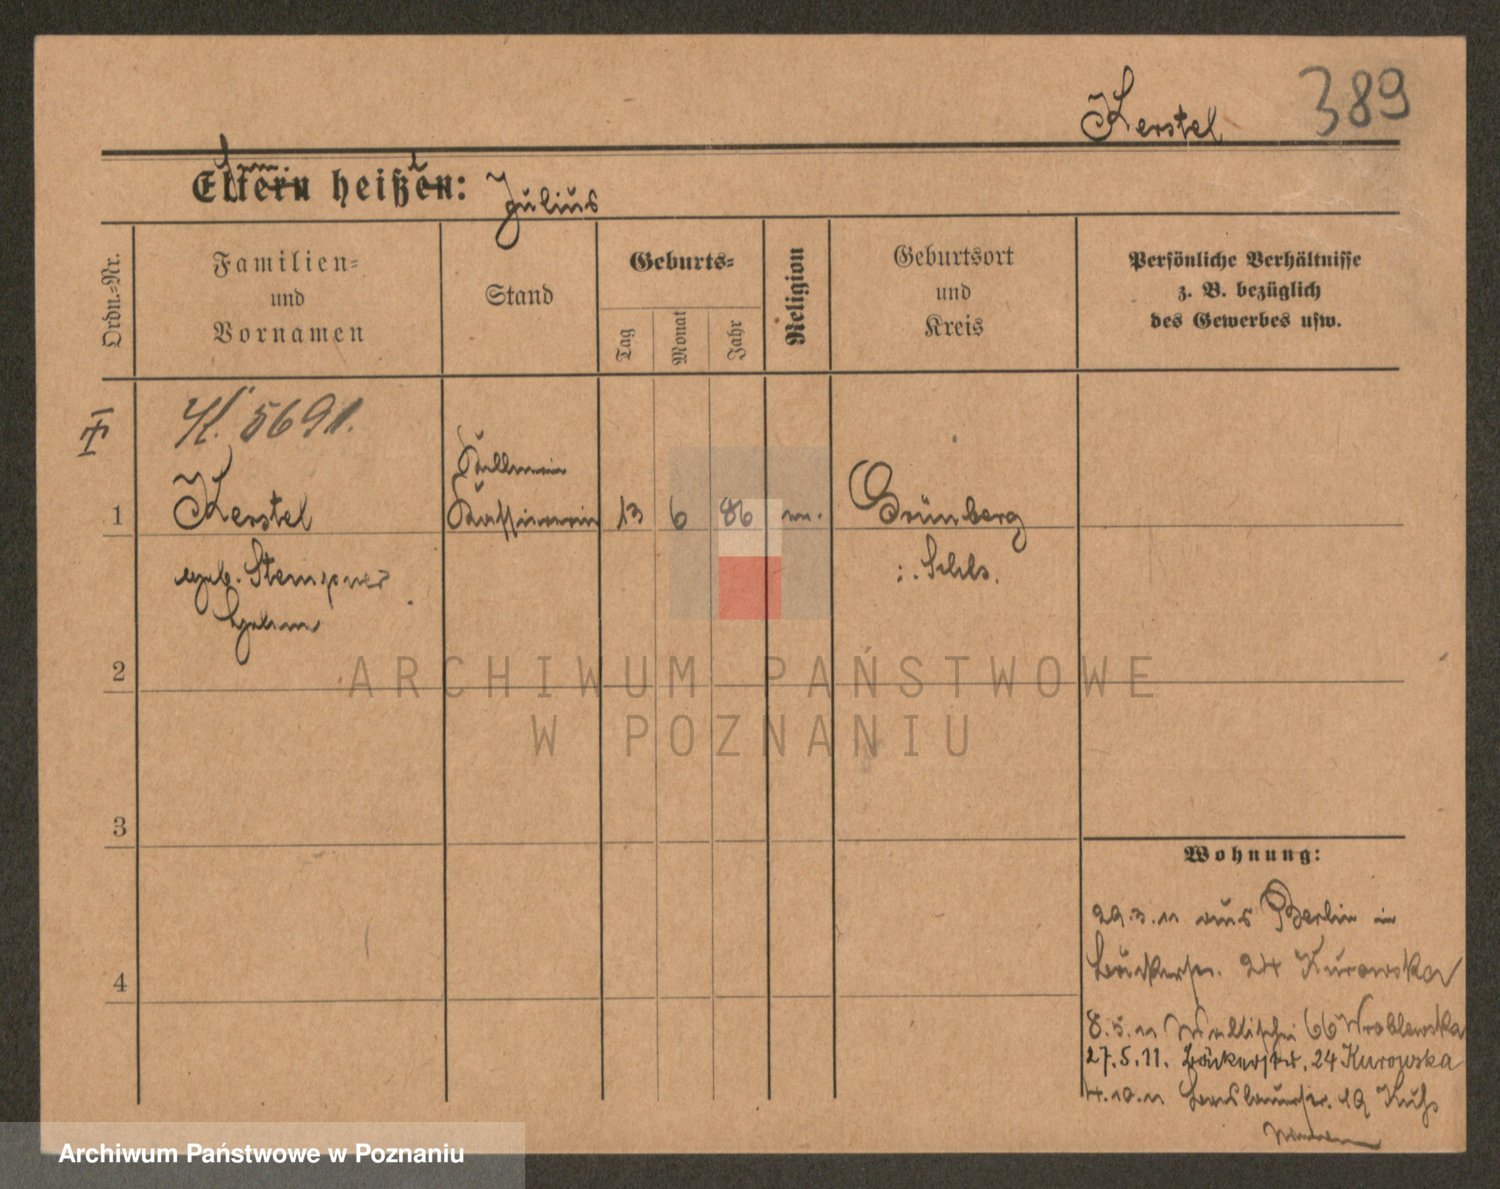 Kerstel 389
Eltern heißen: Julius
Ordn.-Nr.
Familien-
und
Vornamen
Stand
Geburts-
Tag
Monat
Jahr
Religion
Geburtsort
und
Kreis
Persönliche Verhältnisse
z. B. bezüglich
des Gewerbes usw.
K. 5691.
Kellnerin
1 Kerstel Kassiererin 13 6 86 Grünberg
geb. Stempner i. Schls.
Helene
2
ARCHIWUM PAŃSTWOWE
W POZNANIU
3
Wohnung:
29.3.11 aus Berlin in
Bäckerstr. 24 Kurowska
4
8.5.11 Wallischei 66 Wroblewska
27.5.11. Bäckerstr. 24 Kurowska
4.10.11 19
Archiwum Państwowe w Poznaniu